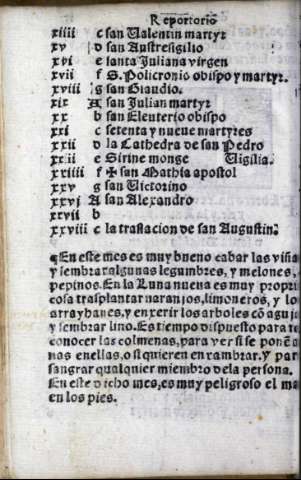 Reportorio
xiiii c san Valentin martyr
xv d san Austregilio
xvi e santa Juliana virgen
xvii f S. Policronio obispo y martyr.
xviii g san Claudio.
xix A san Julian martyr
xx b san Eleuterio obispo
xxi c setenta y nueue martyres
xxii d la Cathedra de san Pedro
xxiii e Sirine monge Uigilia.
xxiiii f ✠ san Mathia apostol
xxv g san Uictorino
xxvj A san Alexandro
xxvii b
xxviii c la traslacion de san Augustin.
¶En este mes es muy bueno cabar las viña
y sembrar algunas legumbres, y melones,
pepinos. En la Luna nueua es muy propri
cosa trasplantar naranjos, limoneros, y lo
arrayhanes, y enxerir los arboles cõ agu
y sembrar lino. Es tiempo dispuesto para re
conocer las colmenas, para ver si se ponẽ a
nas enellas, o si quieren enxambrar. Y par
sangrar qualquier miembro dela persona.
En este dicho mes, es muy peligroso el ma
en los pies.